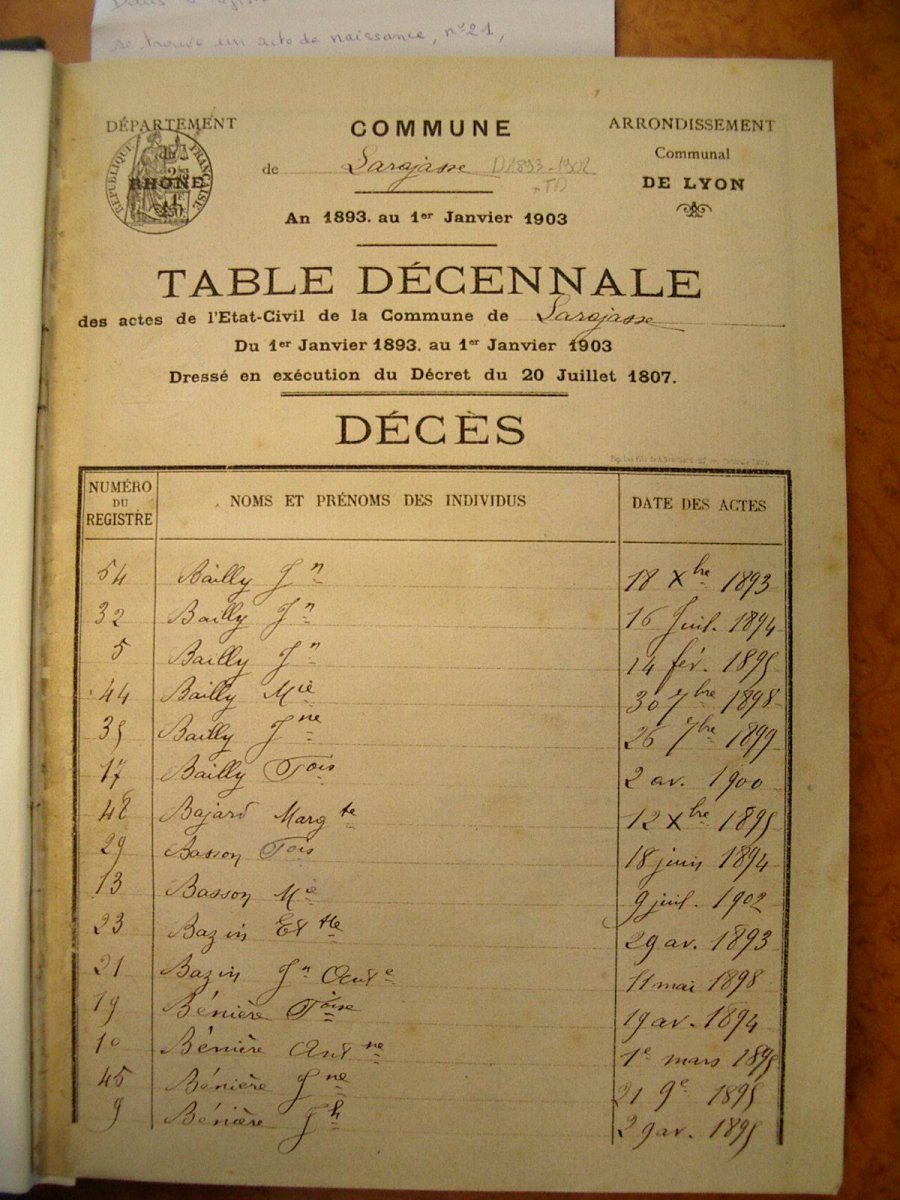 se trouve un acte de naissance, n°21,
DÉPARTEMENT
du
RHÔNE
RÉPUBLIQUE FRANÇAISE
COMMUNE
de Larajasse D1893-1902
+TD
ARRONDISSEMENT
Communal
DE LYON
An 1893. au 1er Janvier 1903
TABLE DÉCENNALE
des actes de l'Etat-Civil de la Commune de Larajasse
Du 1er Janvier 1893. au 1er Janvier 1903
Dressé en exécution du Décret du 20 Juillet 1807.
DÉCÈS
NUMÉRO DU REGISTRE NOMS ET PRÉNOMS DES INDIVIDUS DATE DES ACTES
54 Bailly Jn 18 Xbre 1893
32 Bailly Jn 16 Juil. 1894
5 Bailly Jn 14 fév. 1895
44 Bailly Mie 30 7bre 1898
35 Bailly Jne 26 7bre 1899
17 Bailly Fois 2 av. 1900
48 Bajard Margte 12 Xbre 1895
29 Basson Fois 18 juin 1894
13 Basson Mie 9 juil. 1902
23 Bazin Ettte 29 av. 1893
21 Bazin Jn Ante 11 mai 1898
19 Bénière Foise 19 av. 1894
10 Bénière Antne 1e mars 1895
45 Bénière Jne 21 9e 1895
9 Bénière Jh 29 av. 1895